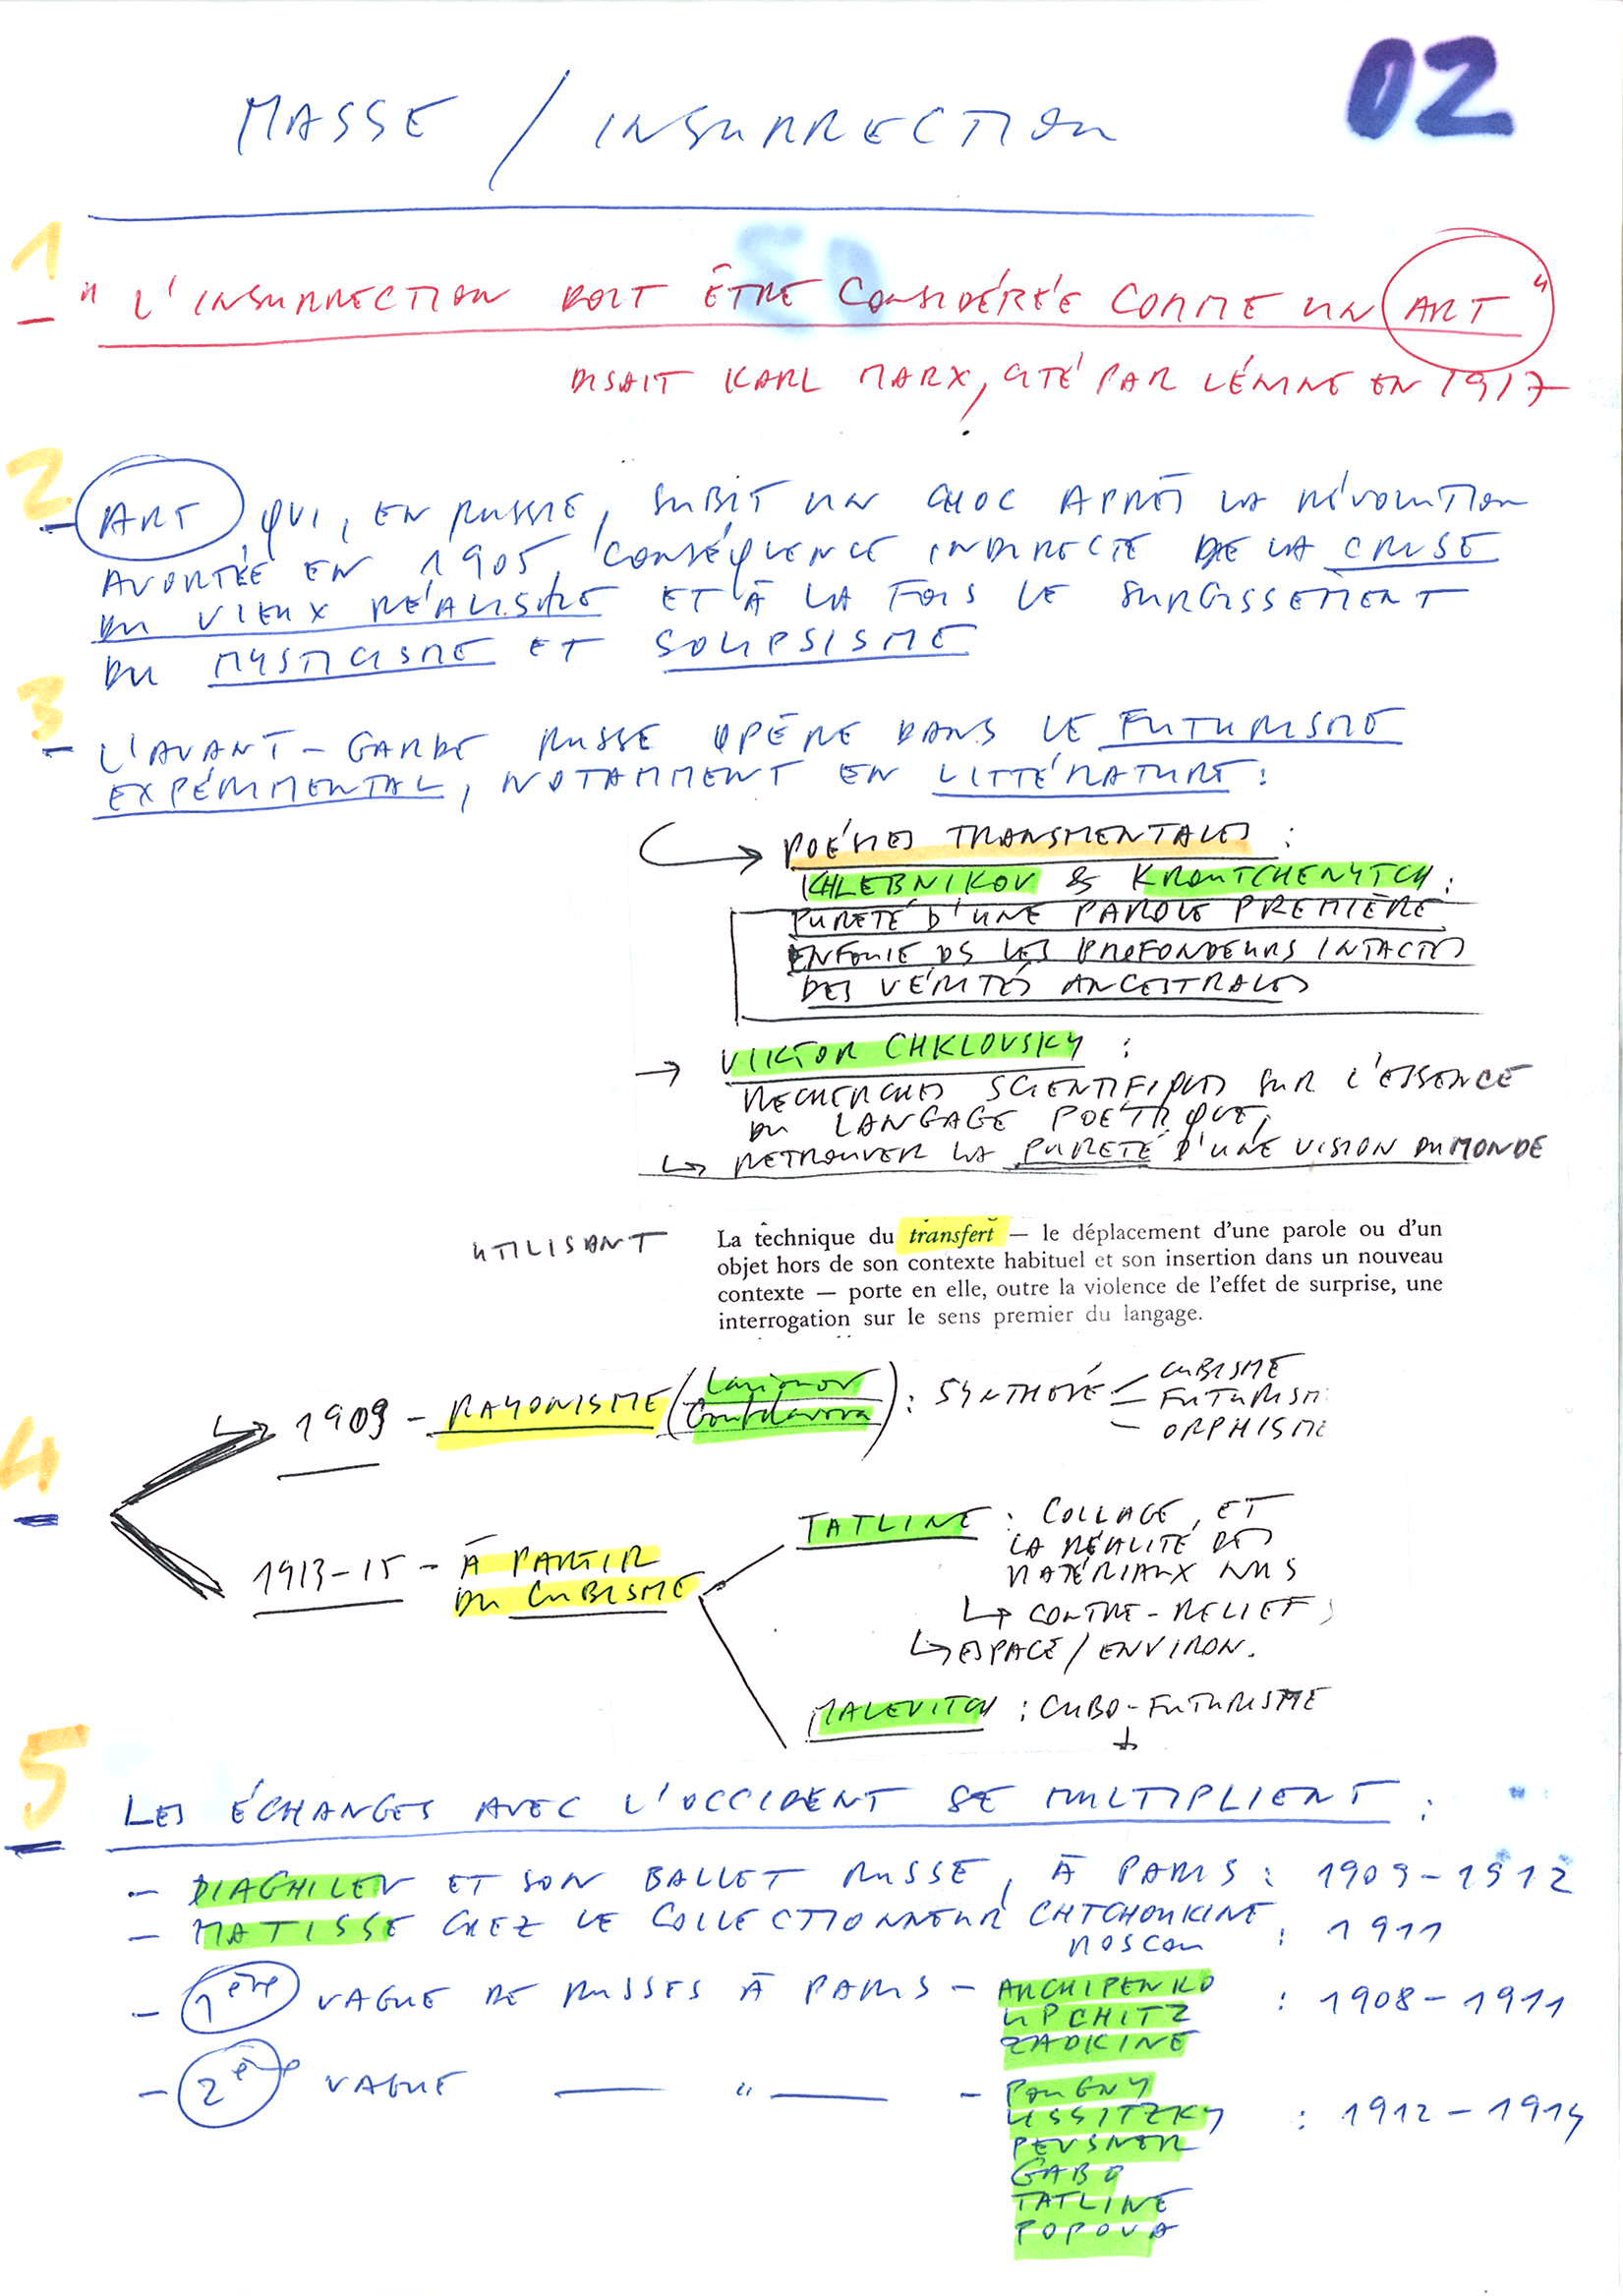 02
MASSE / INSURRECTION
1
- "L'INSURRECTION DOIT ÊTRE CONSIDÉRÉE COMME UN ART"
DISAIT KARL MARX, CITÉ PAR LÉNINE EN 1917
2
- ART QUI, EN RUSSIE, SUBIT UN CHOC APRÈS LA RÉVOLUTION
AVORTÉE EN 1905, CONSÉQUENCE INDIRECTE DE LA CRISE
DU VIEUX RÉALISME ET À LA FOIS LE SURGISSEMENT
DU MYSTICISME ET SOLIPSISME
3
- L'AVANT-GARDE RUSSE OPÈRE DANS LE FUTURISME
EXPÉRIMENTAL, NOTAMMENT EN LITTÉRATURE :
→ POÉSIES TRANSMENTALES :
KHLEBNIKOV & KROUTCHENYTCH :
PURETÉ D'UNE PAROLE PREMIÈRE
ENFOUIE DS LES PROFONDEURS INTACTES
DES VÉRITÉS ANCESTRALES
→ VIKTOR CHKLOVSKY :
RECHERCHES SCIENTIFIQUES SUR L'ESSENCE
DU LANGAGE POÉTIQUE,
↳ RETROUVER LA PURETÉ D'UNE VISION DU MONDE
UTILISANT
La technique du transfert — le déplacement d'une parole ou d'un
objet hors de son contexte habituel et son insertion dans un nouveau
contexte — porte en elle, outre la violence de l'effet de surprise, une
interrogation sur le sens premier du langage.
4
-
↳ 1909 - RAYONISME (Larionov
Gontcharova) : SYNTHÈSE
CUBISME
FUTURISM
- ORPHISME
1913-15 - À PARTIR
DU CUBISME
TATLINE : COLLAGE, ET
LA RÉALITÉ DES
MATÉRIAUX NUS
↳ CONTRE-RELIEF,
↳ ESPACE / ENVIRON.
MALEVITCH : CUBO-FUTURISME
↓
5
-
LES ÉCHANGES AVEC L'OCCIDENT SE MULTIPLIENT :
- DIAGHILEV ET SON BALLET RUSSE, À PARIS : 1909-1912
- MATISSE CHEZ LE COLLECTIONNEUR CHTCHOUKINE,
MOSCOU : 1911
- 1ère VAGUE DE RUSSES À PARIS - ARCHIPENKO : 1908-1911
LIPCHITZ
ZADKINE
- 2ème VAGUE — " — - POUGNY
LISSITZKY : 1912-1914
PEVSNER
GABO
TATLINE
POPOVA